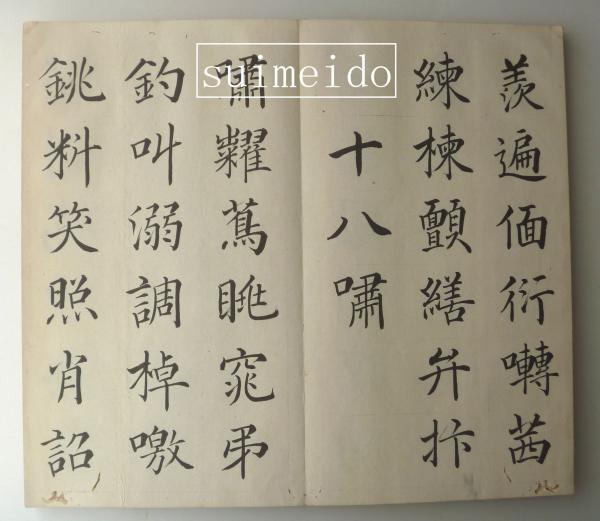 羨遍偭衍囀茜
練楝顫繕弁抃
十八嘯
嘯糶蔦眺窕弔
釣叫溺調棹噭
銚料笑照肖詔
suimeido